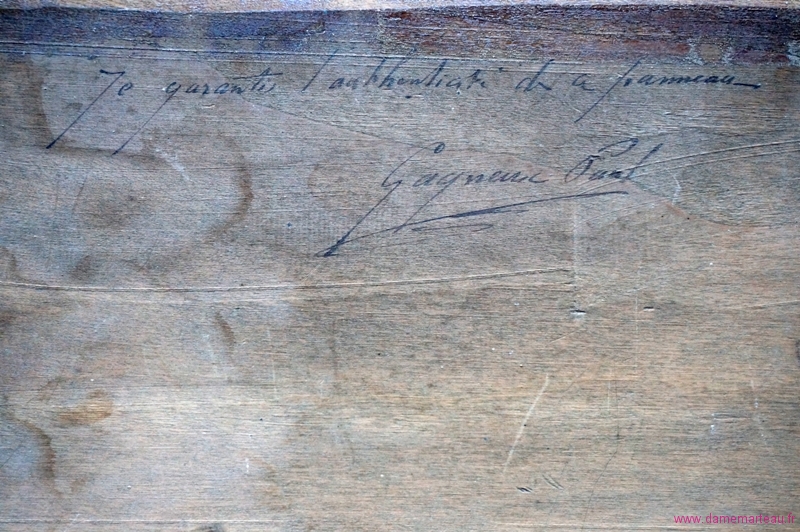 Je garantis l'authenticité de ce panneau
Gagneux Paul
www.damemarteau.fr